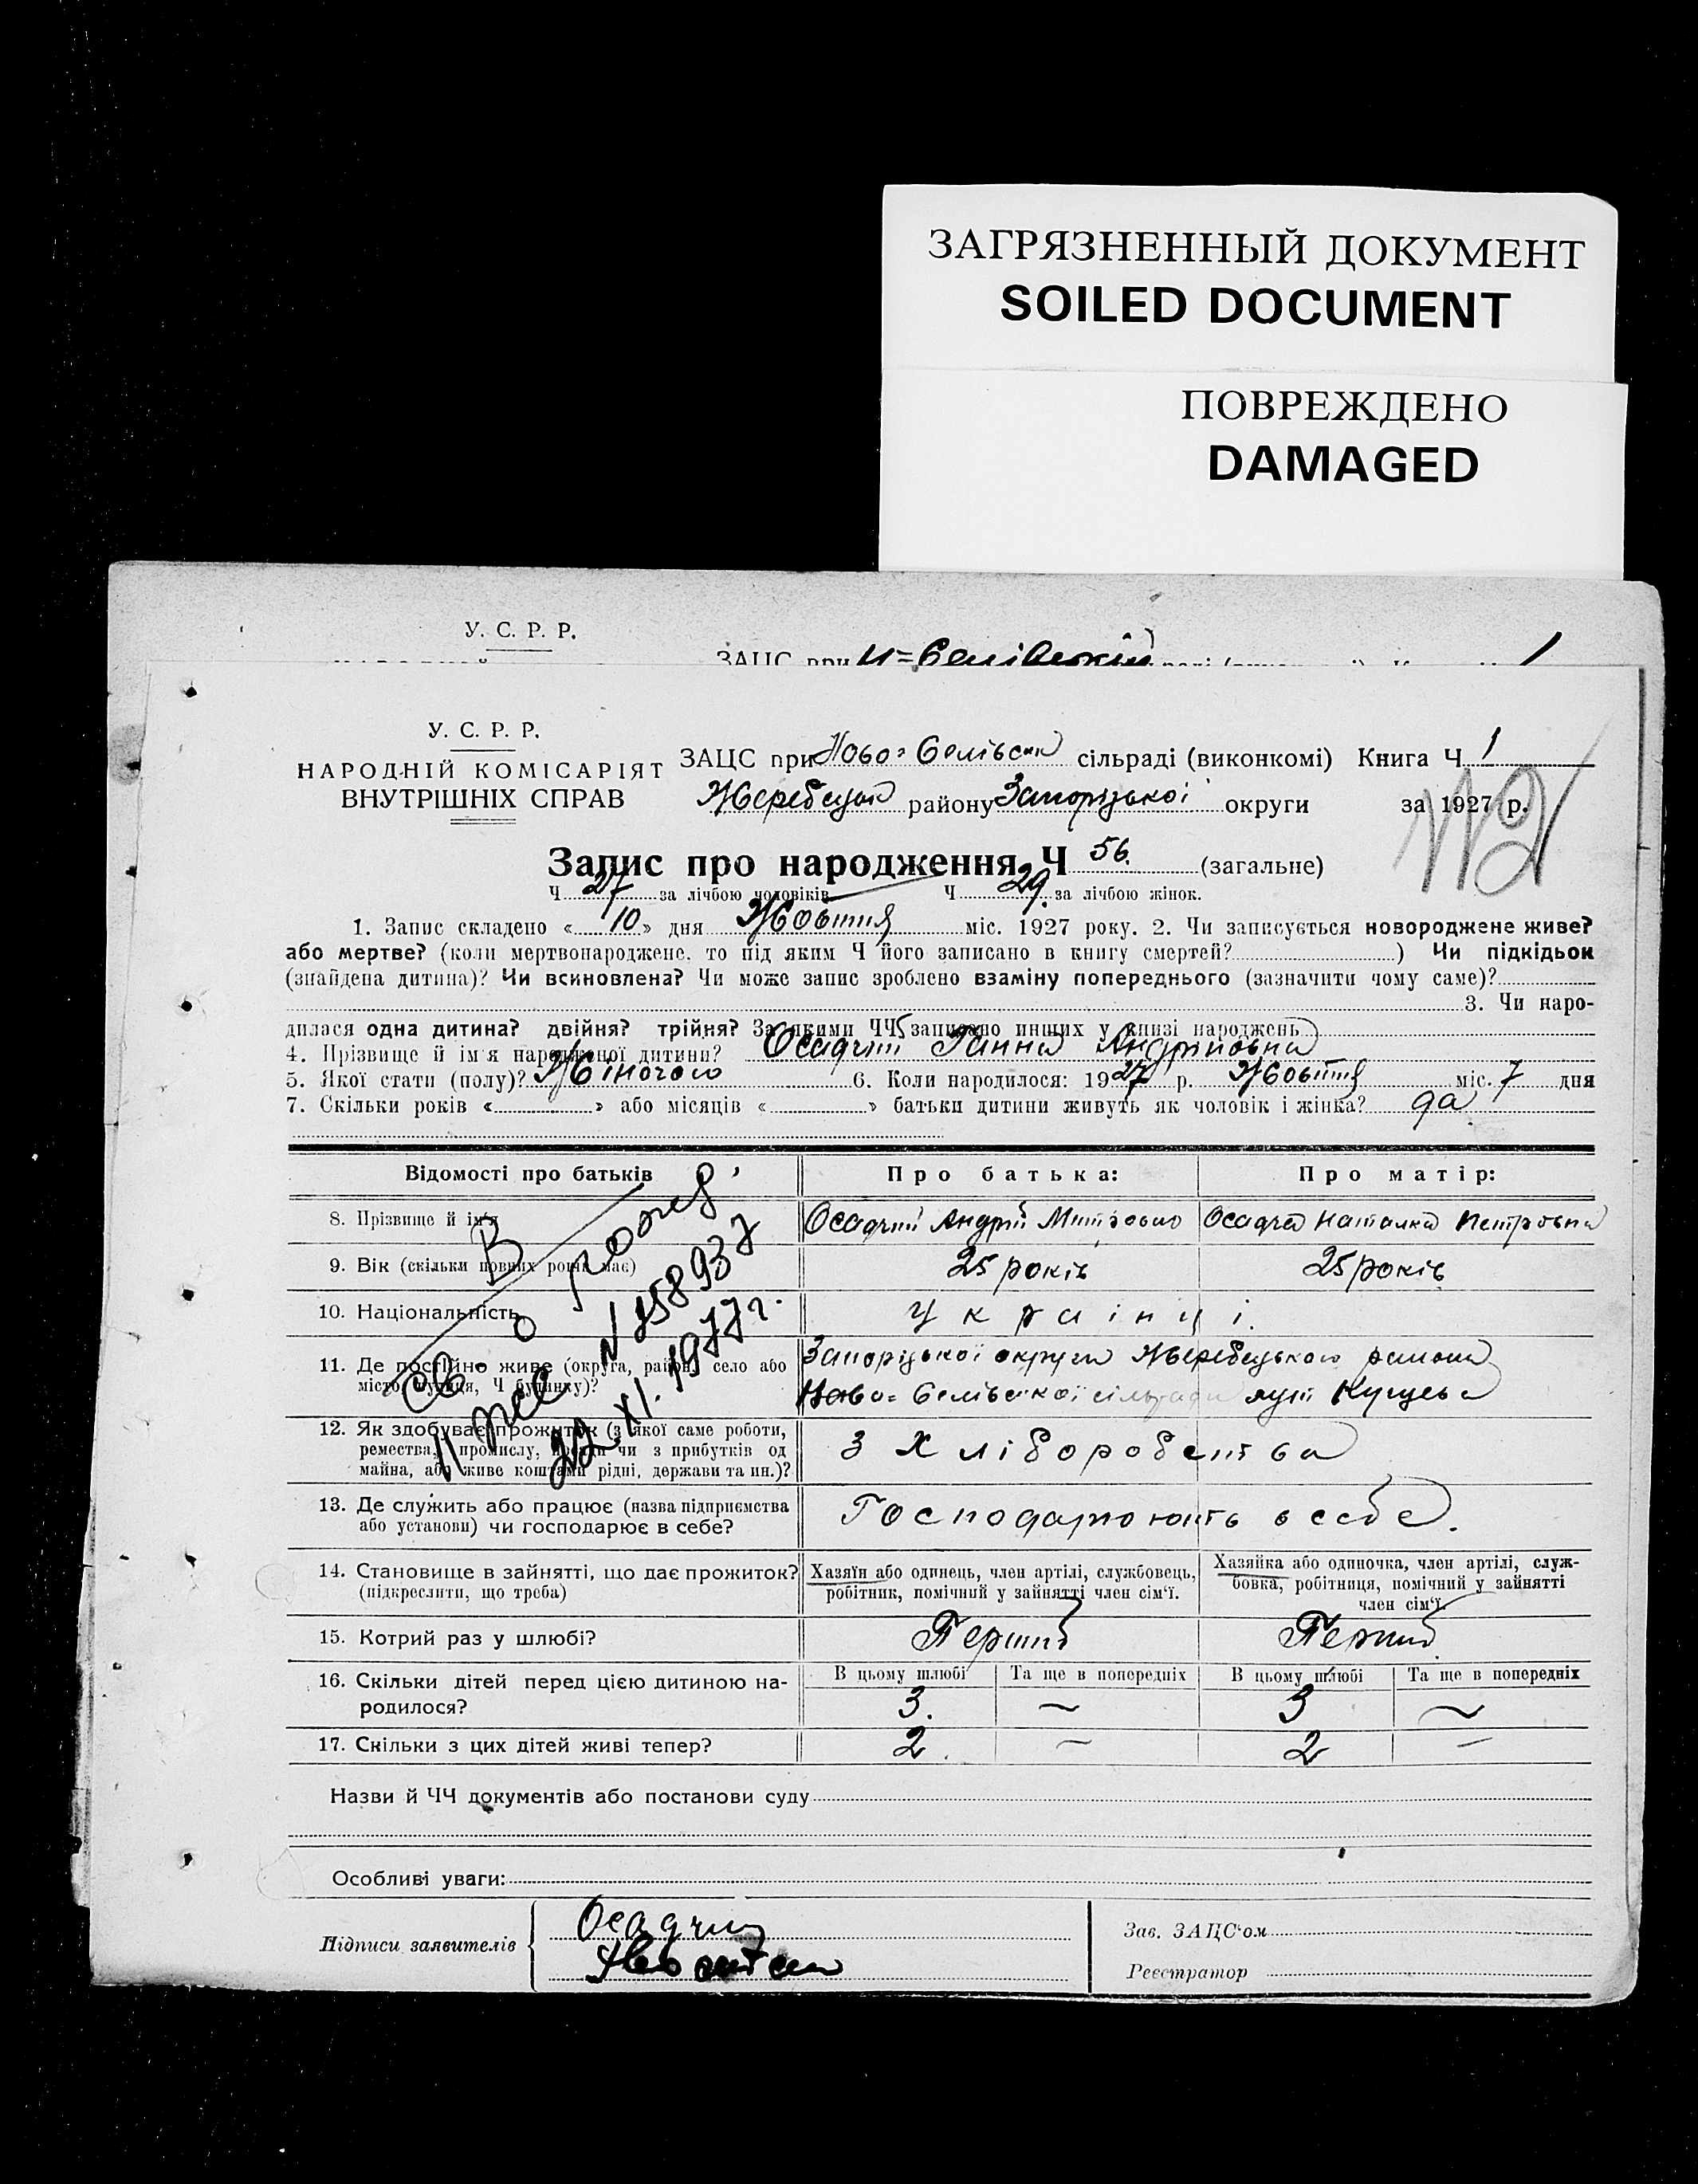 ЗАГРЯЗНЕННЫЙ ДОКУМЕНТ
SOILED DOCUMENT
ПОВРЕЖДЕНО
DAMAGED
У. С. Р. Р.
ЗАЦС при 1
У. С. Р. Р.
НАРОДНІЙ КОМІСАРІЯТ
ВНУТРІШНІХ СПРАВ
ЗАЦС при Ново= сільраді (виконкомі) Книга Ч. 1
району Запоріцької округи за 1927 р.
Запис про народження Ч 56 (загальне)
Ч 27 за лічбою чоловіків Ч 29 за лічбою жінок.
1. Запис складено « 10 » дня Жовтня міс. 1927 року. 2. Чи записується новороджене живе?
або мертве? (коли мертвонароджене, то під яким Ч його записано в книгу смертей? ) Чи підкідьок
(знайдена дитина)? Чи всиновлена? Чи може запис зроблено взаміну попереднього (зазначити чому саме)?
3. Чи наро-
дилася одна дитина? двійня? трійня? За якими ЧЧ записано инших у книзі народжень
4. Прізвище й ім'я народженої дитини? Осадчій Ганна Андріївна
5. Якої стати (полу)? Жіночого 6. Коли народилося: 1927 р. Жовтня міс. 7 дня
7. Скільки років « » або місяців « » батьки дитини живуть як чоловік і жінка? да
Відомості про батьків Про батька: Про матір:
8. Прізвище й ім'я Осадчий Андрій Осадча Наталка Петровна
9. Вік (скільки повних років має) 25 років 25 років
10. Національність Українці.
11. Де постійно живе (округа, район, село або
місто, вулиця, Ч будинку)?
Запоріцької округи Жеребецького района
Ново= сільради хут
12. Як здобуває прожиток (з якої саме роботи,
ремества, промислу, праці чи з прибутків од
майна, або живе коштами рідні, держави та ин.)?
З Хліборобства
13. Де служить або працює (назва підприємства
або установи) чи господарює в себе?
Господарюють в себе.
14. Становище в зайнятті, що дає прожиток?
(підкреслити, що треба)
Хазяїн або одинець, член артілі, службовець,
робітник, помічний у зайнятті член сім'ї.
Хазяйка або одиночка, член артілі, служ-
бовка, робітниця, помічний у зайнятті
член сім'ї.
15. Котрий раз у шлюбі? Перший Перший
16. Скільки дітей перед цією дитиною на-
родилося?
В цьому шлюбі Та ще в попередніх В цьому шлюбі Та ще в попередніх
3. ~ 3 ~
17. Скільки з цих дітей живі тепер? 2. – 2 –
Св о рожд.
N 258937
22.XI.1977 г.
Назви й ЧЧ документів або постанови суду
Особливі уваги:
Підписи заявителів
Осадчий
Зав. ЗАЦС'ом
Реєстратор